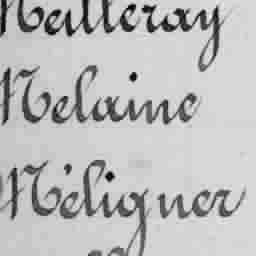 Meilleray
Melaine
Méligner